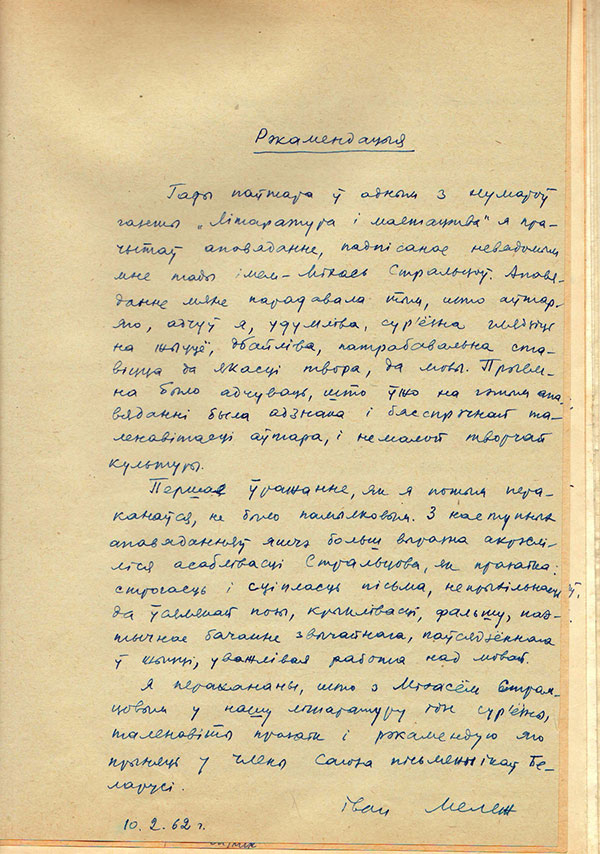 Рэкамендацыя
Гады паўтара ў адным з нумароў
газеты „Літаратура і мастацтва" я пра-
чытаў апавяданне, падпісанае невядомым
мне тады імем – Міхась Стральцоў. Апавя-
данне мяне парадавала тым, што аўтар
яго, адчуў я, удумліва, сур'ёзна глядзіць
на жыццё, дбайліва, патрабавальна ста-
віцца да якасці твора, да мовы. Прыем-
на было адчуваць, што ўжо на гэтым апа-
вяданні была адзнака і бясспрэчнай та-
ленавітасці аўтара, і немалой творчай
культуры.
Першае ўражанне, як я потым пера-
канаўся, не было памылковым. З наступных
апавяданняў яшчэ больш выразна акрэслі-
ліся асаблівасці Стральцова, як празаіка:
строгасць і сціпласць пісьма, непрыхільнасць
да ўсялякай позы, крыклівасці, фальшу, паэ-
тычнае бачанне звычайнага, паўсядзённага
ў жыцці, уважлівая работа над мовай.
Я перакананы, што з Міхасём Страль-
цовым у нашу літаратуру ідзе сур'ёзны,
таленавіты празаік і рэкамендую яго
прыняць у члены Саюза пісьменнікаў Бе-
ларусі.
Іван Мележ
10.2.62 г.